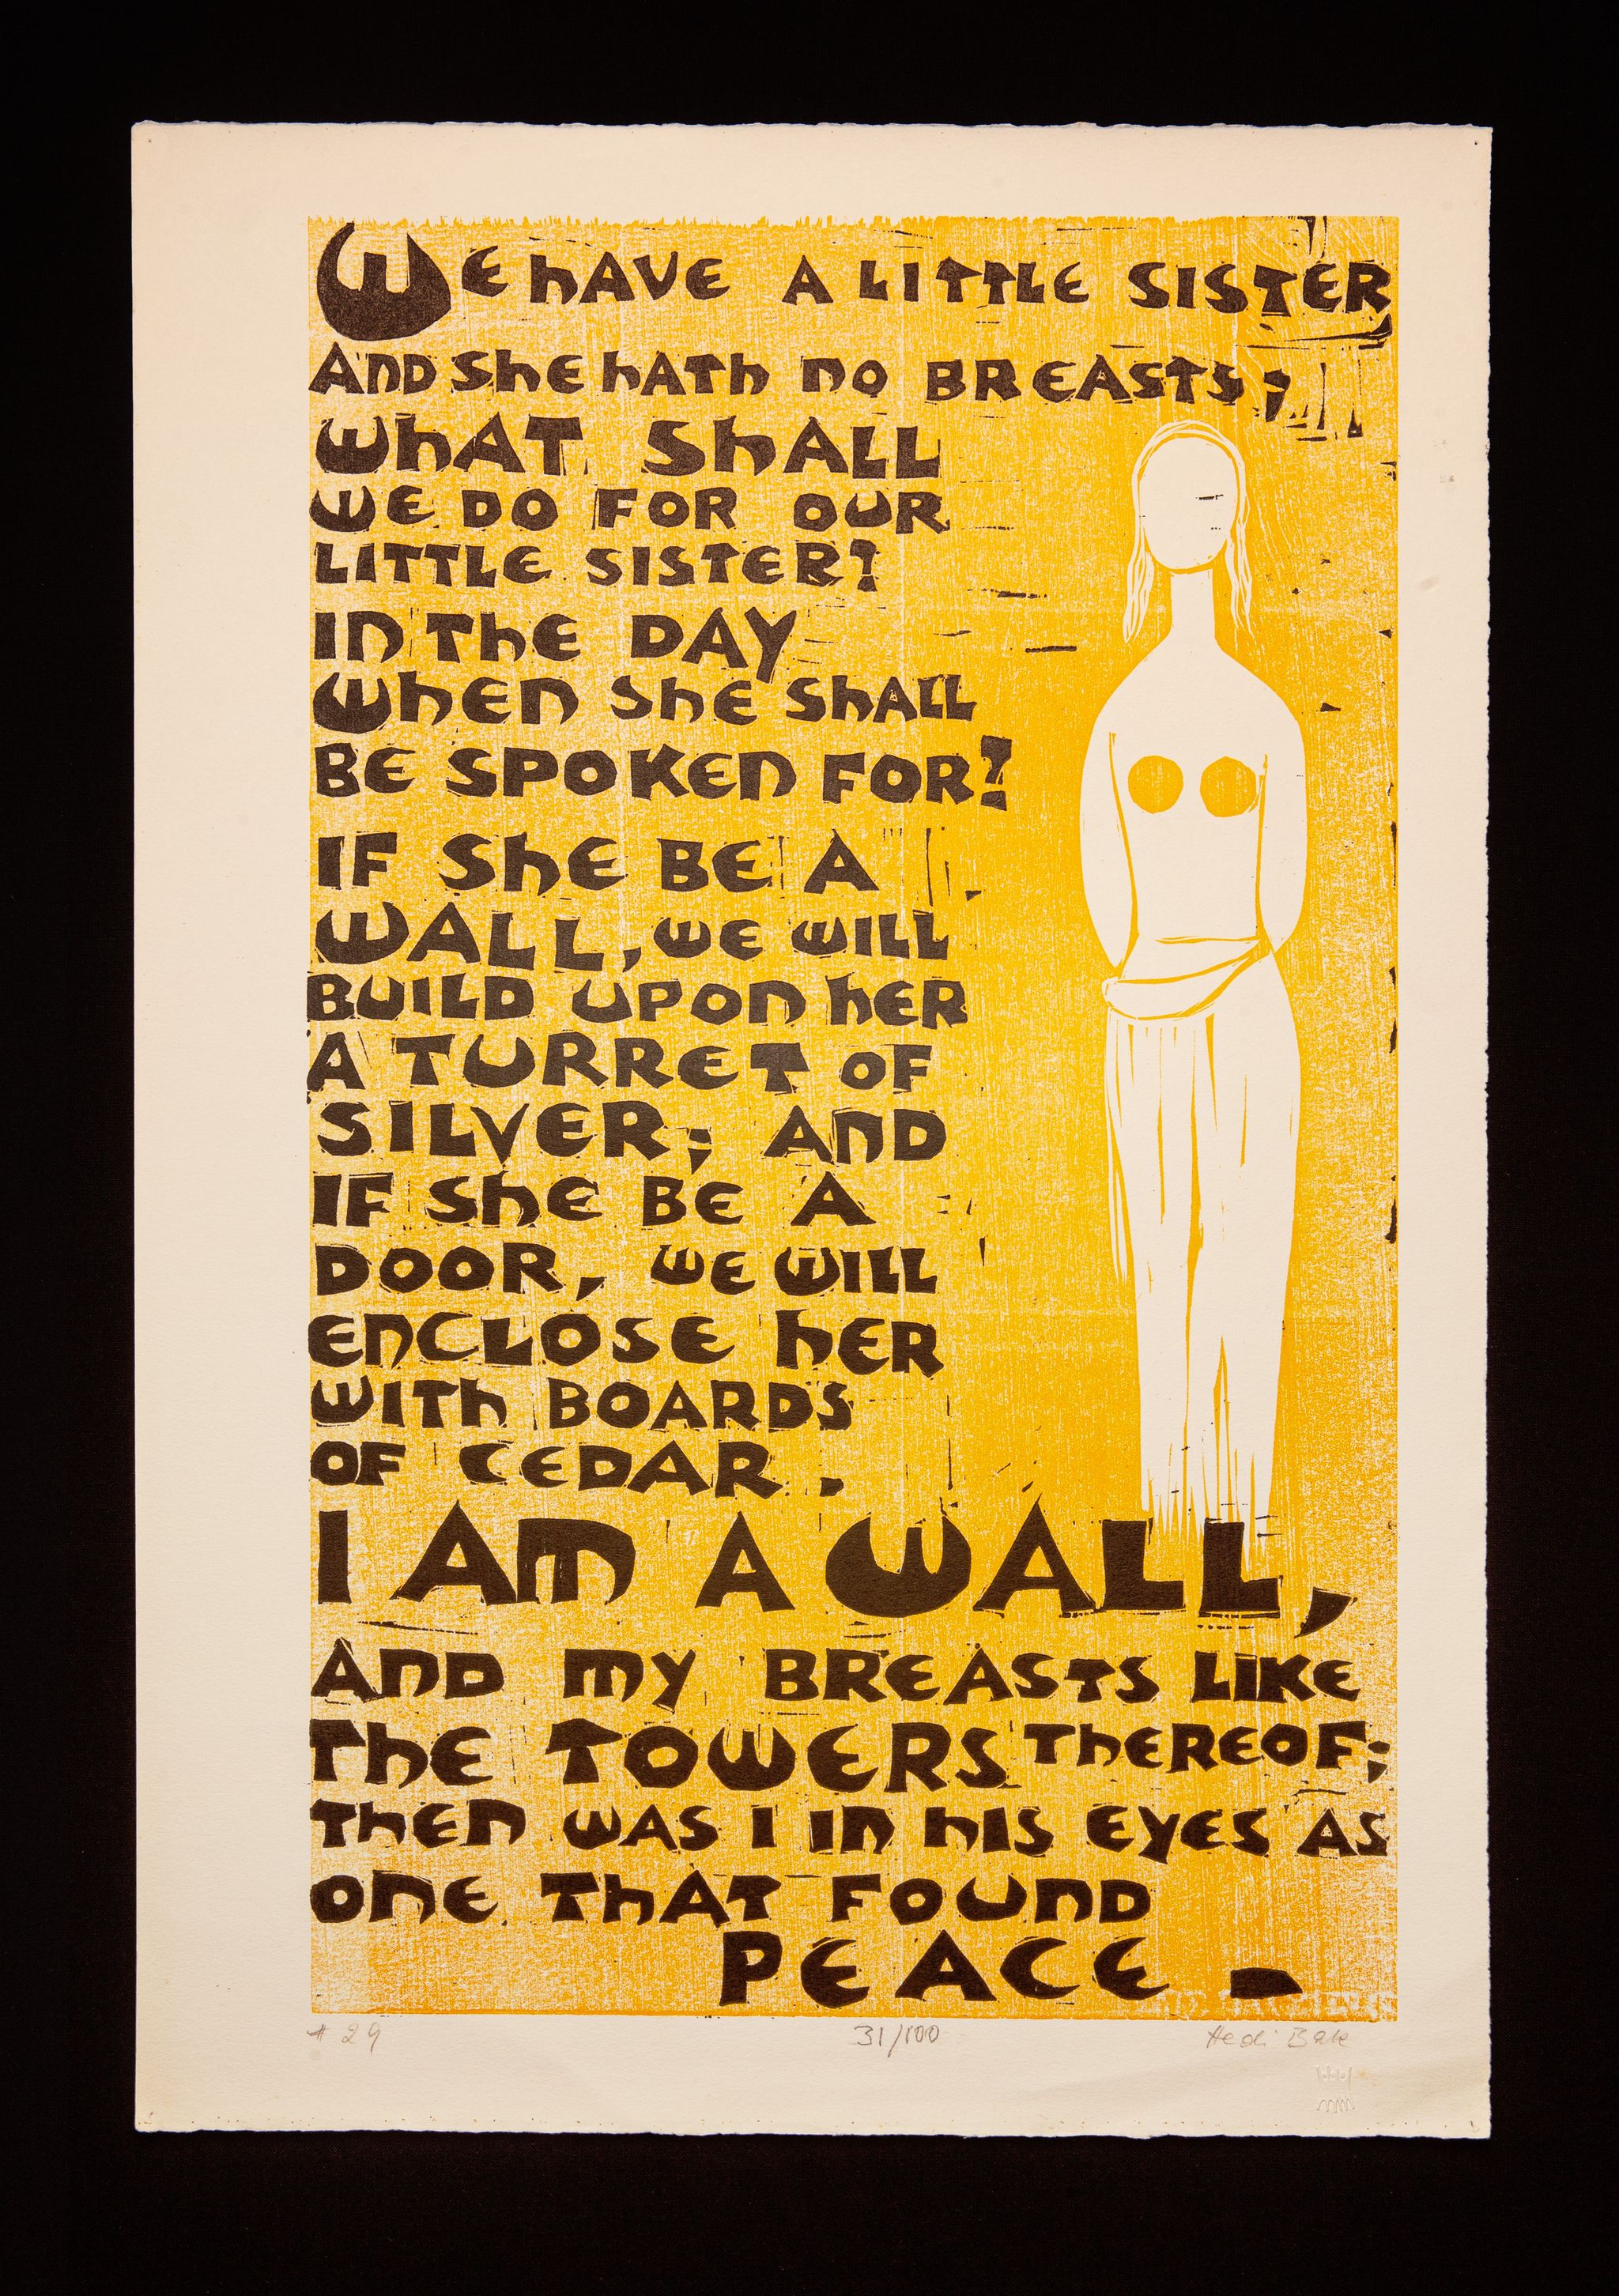 WE hAVE A LITTLE SISTER
AND ShE hATh NO BREASTS;
WhAT ShALL
WE DO FOR OUR
LITTLE SISTER?
IN ThE DAY
WhEN ShE ShALL
BE SPOKEN FOR?
IF ShE BE A
WALL, WE WILL
BUILD UPON hER
A TURRET OF
SILVER; AND
IF ShE BE A
DOOR, WE WILL
ENCLOSE hER
WITh BOARDS
OF CEDAR.
I AM A WALL,
AND MY BREASTS LIKE
ThE TOWERS ThEREOF;
ThEN WAS I IN hIS EYES AS
ONE ThAT FOUND
PEACE
# 29 31/100 Hedi Bak